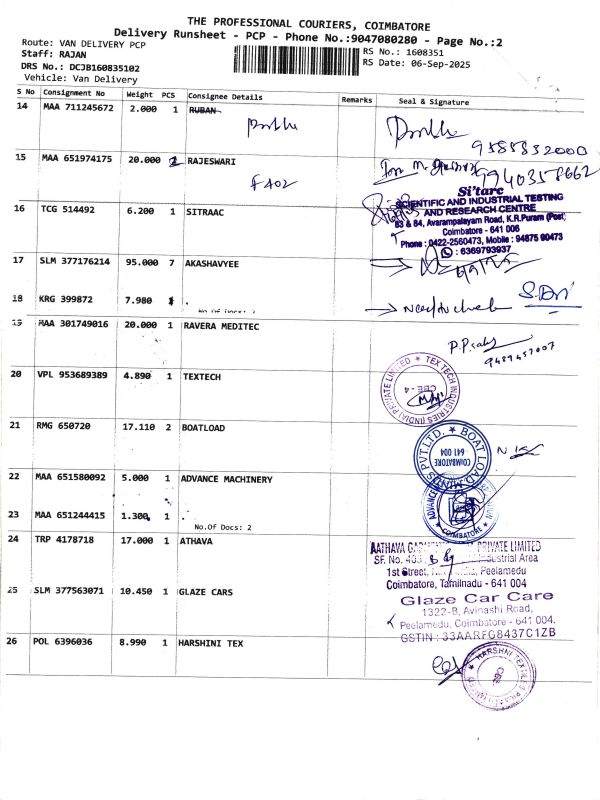 THE PROFESSIONAL COURIERS, COIMBATORE
Delivery Runsheet - PCP - Phone No.:9047080280 - Page No.:2
Route: VAN DELIVERY PCP
RS No.: 1608351
Staff: RAJAN
RS Date: 06-Sep-2025
DRS No.: DCJB160835102
Vehicle: Van Delivery
S No Consignment No Weight PCS Consignee Details Remarks Seal & Signature
14 MAA 711245672 2.000 1 RUBAN
9585532000
15 MAA 651974175 20.000 2 RAJESWARI
F402
9940358662
16 TCG 514492 6.200 1 SITRAAC
Si'tarc
SCIENTIFIC AND INDUSTRIAL TESTING
AND RESEARCH CENTRE
83 & 84, Avarampalayam Road, K.R.Puram (Post)
Coimbatore - 641 006
Phone : 0422-2560473, Mobile : 94875 90473
: 6369793937
17 SLM 377176214 95.000 7 AKASHAVYEE
18 KRG 399872 7.980
No.Of Docs: 2
19 MAA 301749016 20.000 1 RAVERA MEDITEC
9489457007
20 VPL 953689389 4.890 1 TEXTECH
TEX TECH INDUSTRIES (INDIA) PRIVATE LIMITED
CBE - 4
21 RMG 650720 17.110 2 BOATLOAD
BOAT LOAD PVT.LTD.
COIMBATORE
641 004
22 MAA 651580092 5.000 1 ADVANCE MACHINERY
ADVANCE
COIMBATORE
23 MAA 651244415 1.300 1
No.Of Docs: 2
24 TRP 4178718 17.000 1 ATHAVA
AATHAVA PRIVATE LIMITED
SF. No. Industrial Area
1st Street, Peelamedu
Coimbatore, Tamilnadu - 641 004
25 SLM 377563071 10.450 1 GLAZE CARS
Glaze Car Care
1322-B, Avinashi Road,
Peelamedu, Coimbatore - 641 004.
GSTIN : 33AARFG8437C1ZB
26 POL 6396036 8.990 1 HARSHINI TEX
HARSHNI TEXTILES
CBE